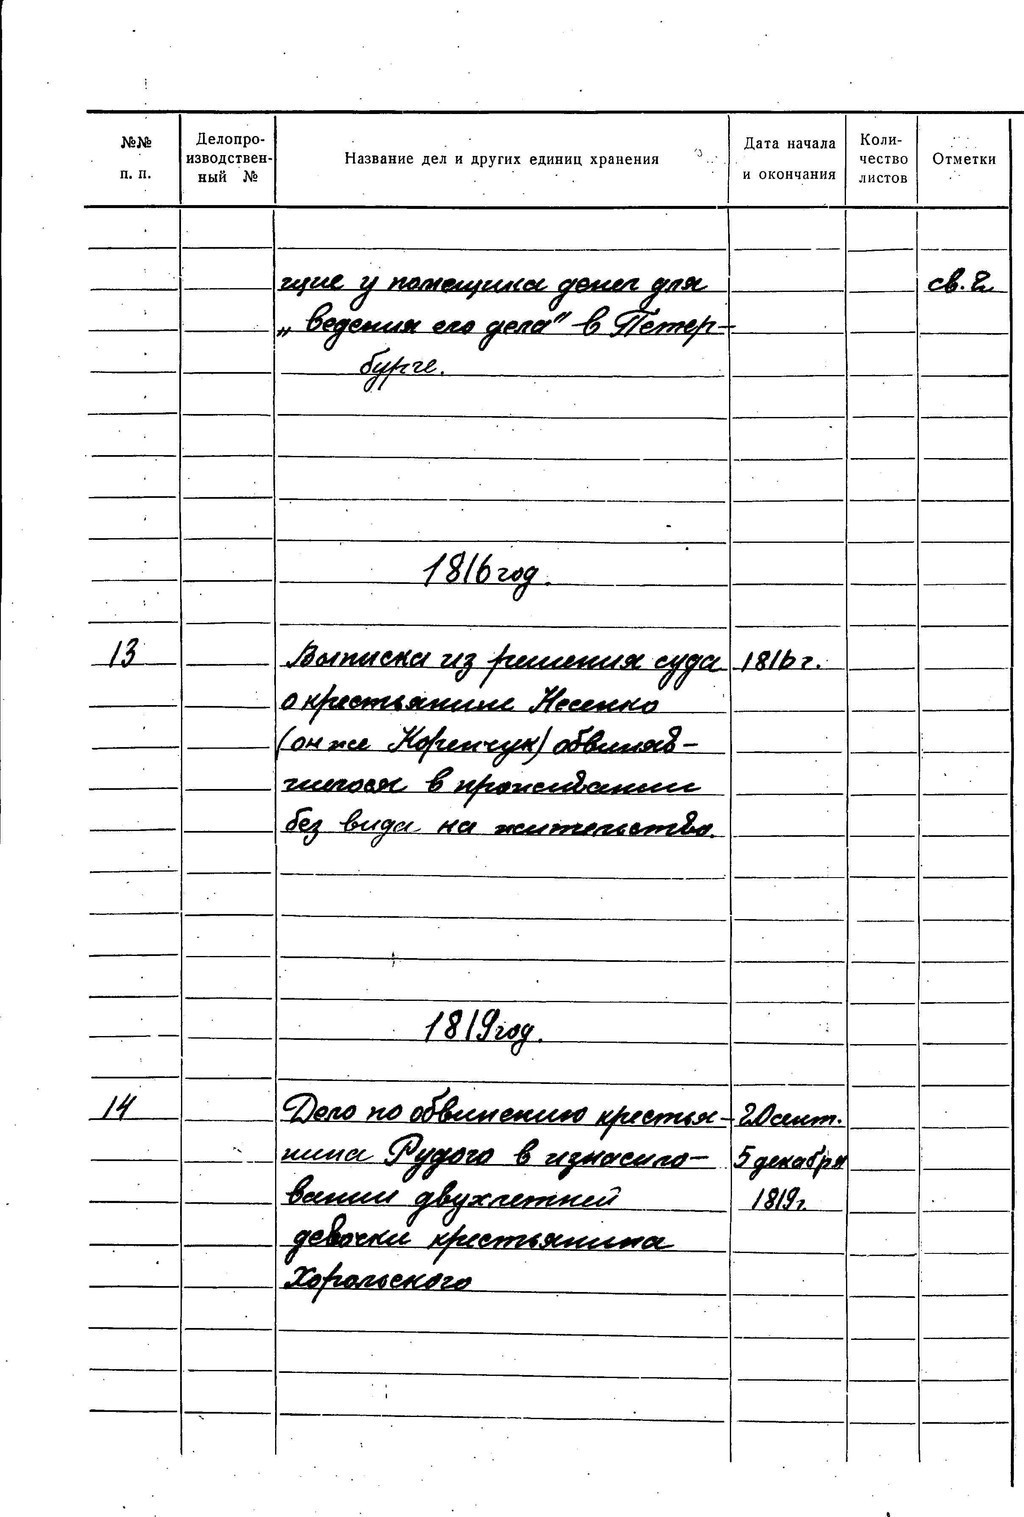 №№ п. п.
Делопро-
изводствен-
ный №
Название дел и других единиц хранения
Дата начала
и окончания
Коли-
чество
листов
Отметки
щие у помещика денег для
„ведения его дела" в Петер-
бурге.
1816 год.
13 Выписка из решения суда 1816 г.
о крестьянине Несенко
(он же Коренчук) обвиняв-
шегося в проживании
без вида на жительство.
1819 год.
14 Дело по обвинению крестья- 20 сент.
нина Рудого в изнасило- 5 декабря
вании двухлетней 1819 г.
девочки крестьянина
Хорольского